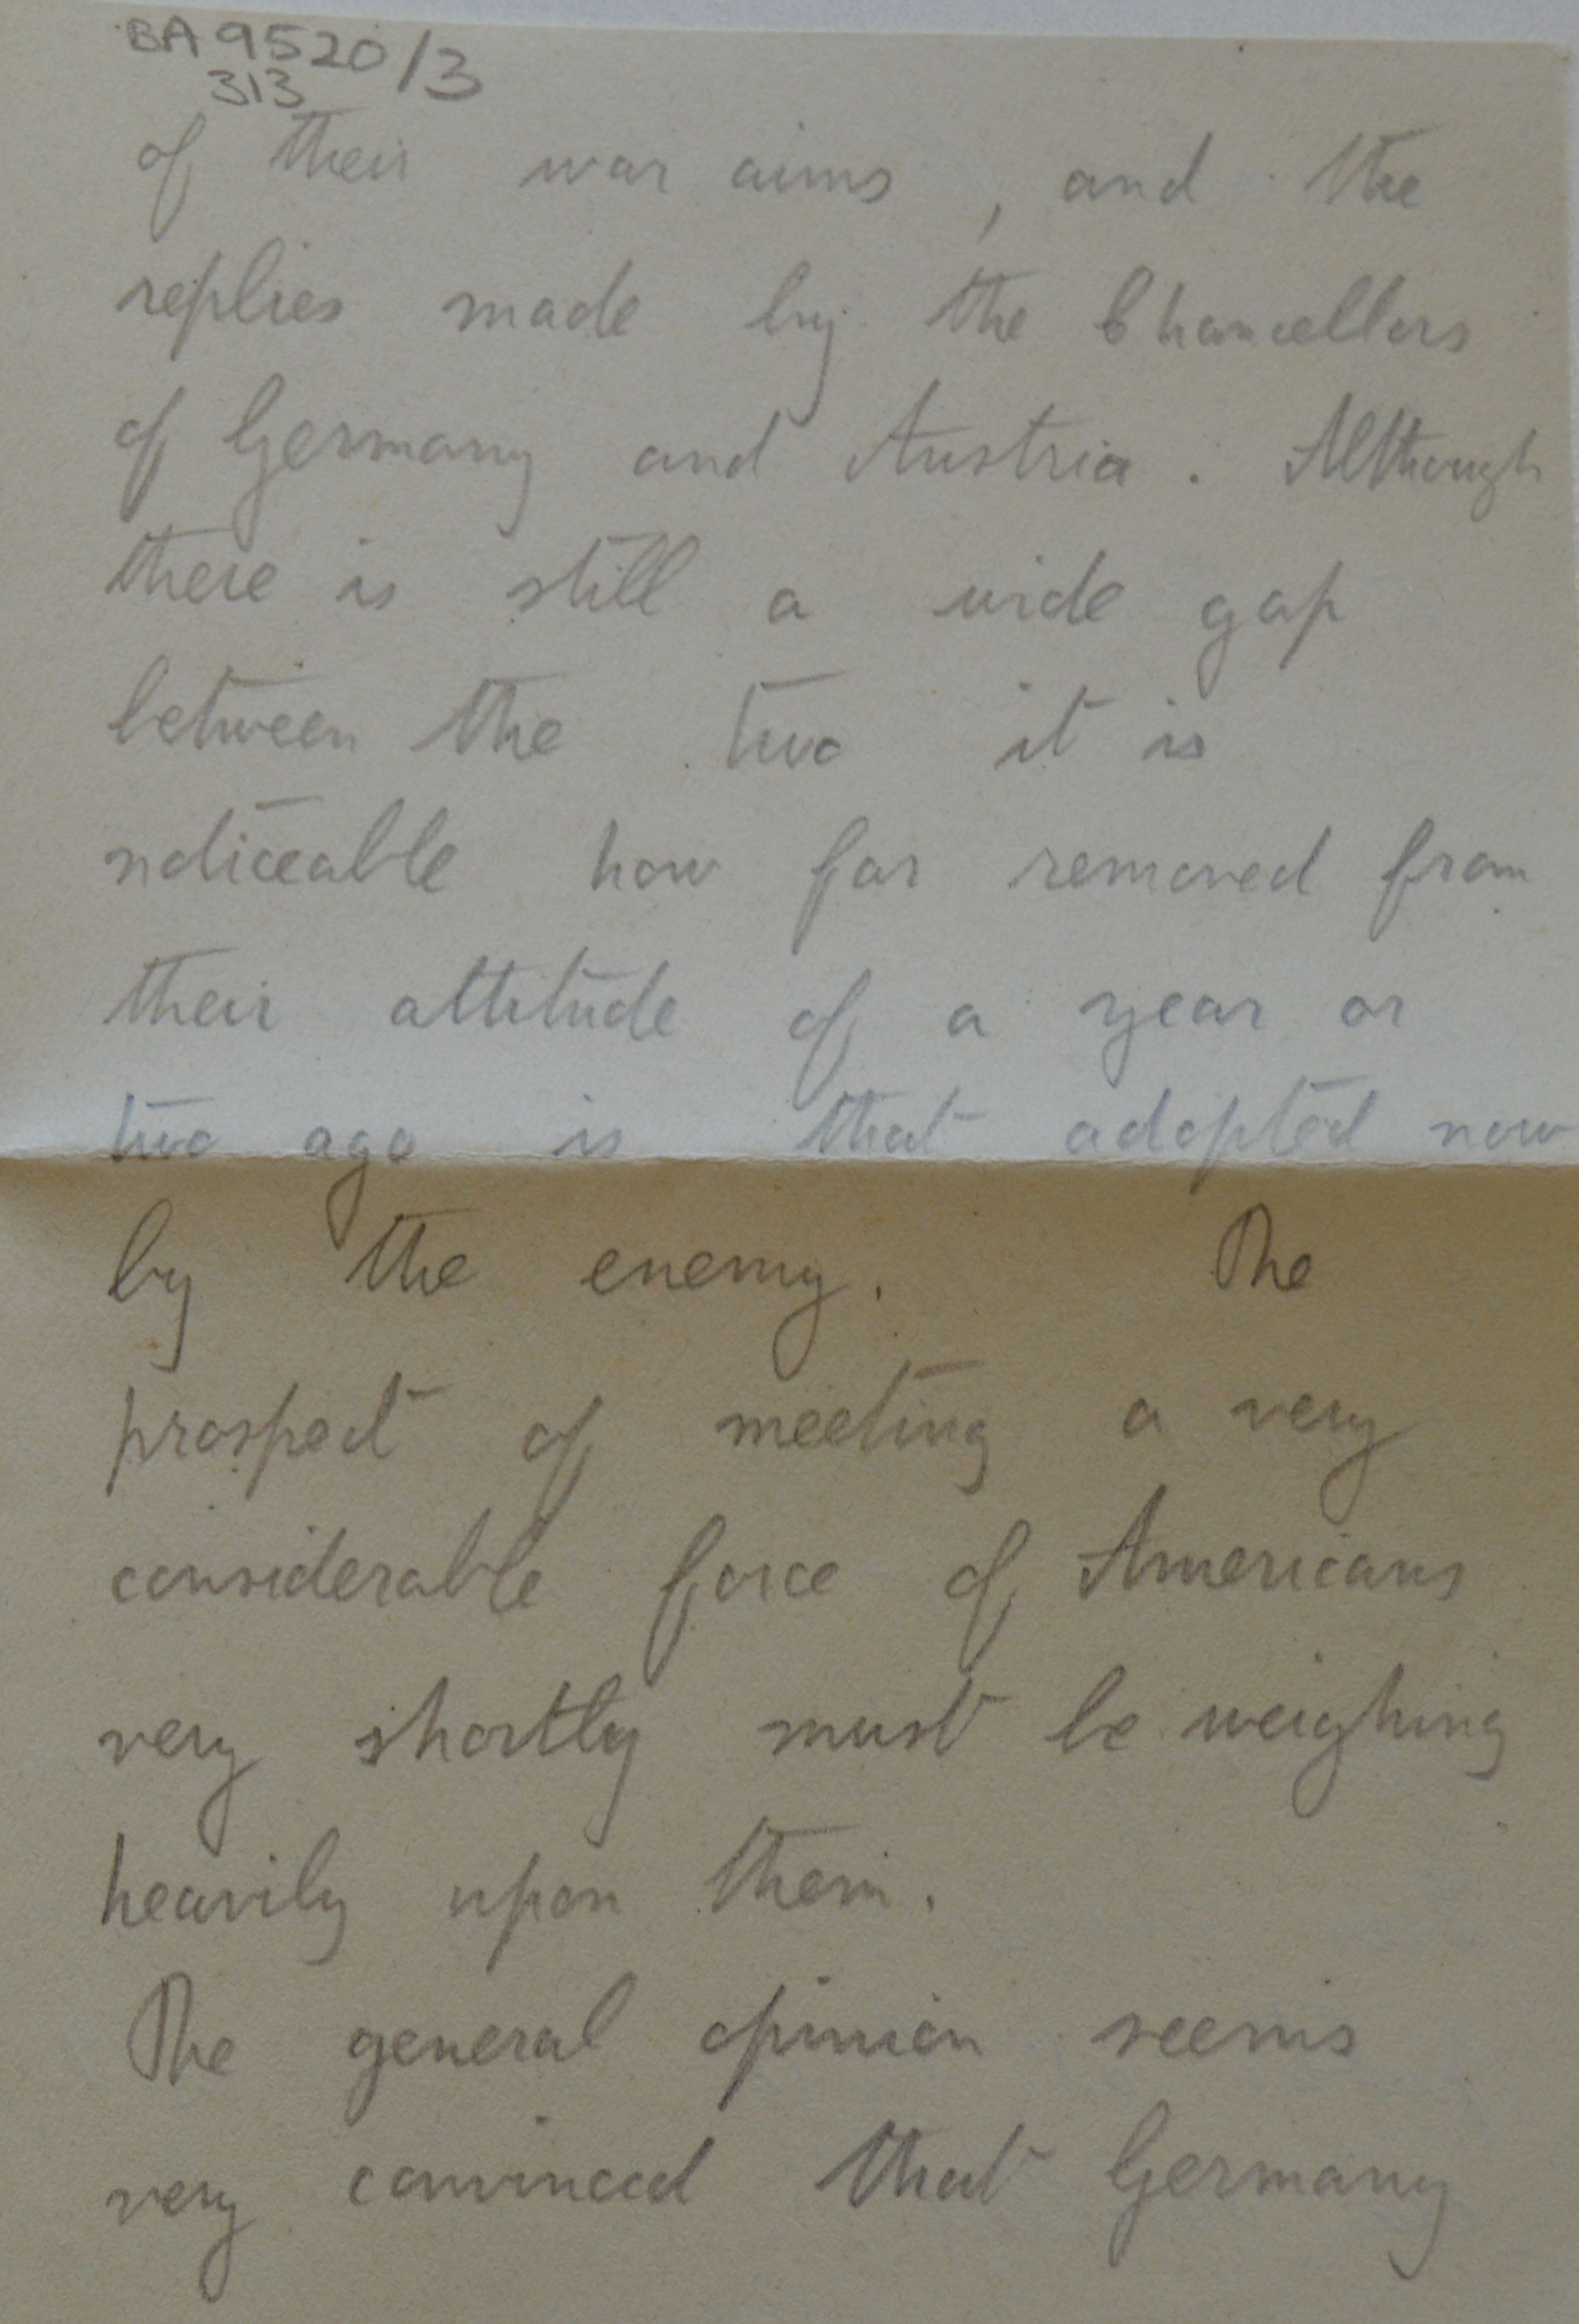 BA 9520/3
313
of their war aims, and the
replies made by the Chancellors
of Germany and Austria. Although
there is still a wide gap
between the two it is
noticeable how far removed from
their attitude of a year or
two ago is that adopted now
by the enemy. The
prospect of meeting a very
considerable force of Americans
very shortly must be weighing
heavily upon them.
The general opinion seems
very convinced that Germany